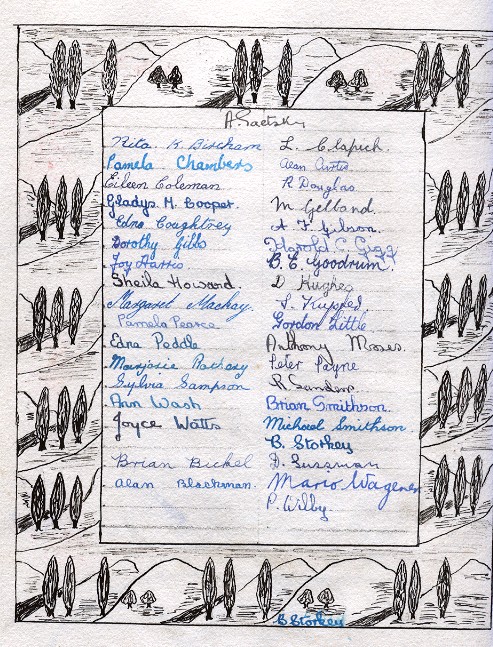 A. Saetsky
Nita K Bircham
Pamela Chambers
Eileen Coleman
Gladys M. Cooper.
Edna Coughtrey
Dorothy Gibbs
Joy Harris
Sheila Howard.
Margaret Mackay.
Pamela Pearce
Edna Peddle
Marjorie
Sylvia Sampson
Ann Wash
Joyce Watts
Brian Bickel
Alan Blackman.
L. Clapich.
Alan Curtis.
R Douglas
M Gelland.
A. F. Gilson.
Harold C. Gigg
B. E. Goodrum.
D Hughes
S. Kupfed
Gordon Little
Anthony Moses.
Peter Payne
R. Sanders.
Brian Smithson.
Michael Smithson.
B. Storkey
D. Sussman
Mario Wagener
P. Wilby
B Storkey